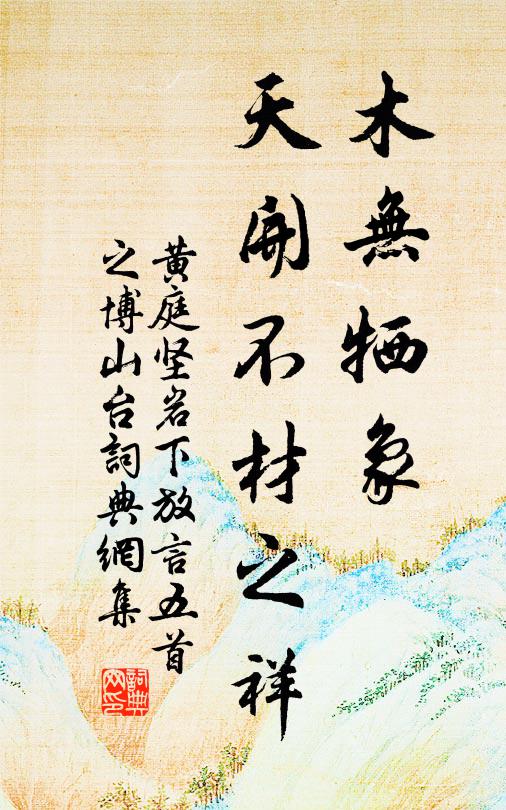 木無牺象
天開不材之祥
黄庭坚岩下放言五首
之博山台詞典網集
詞典